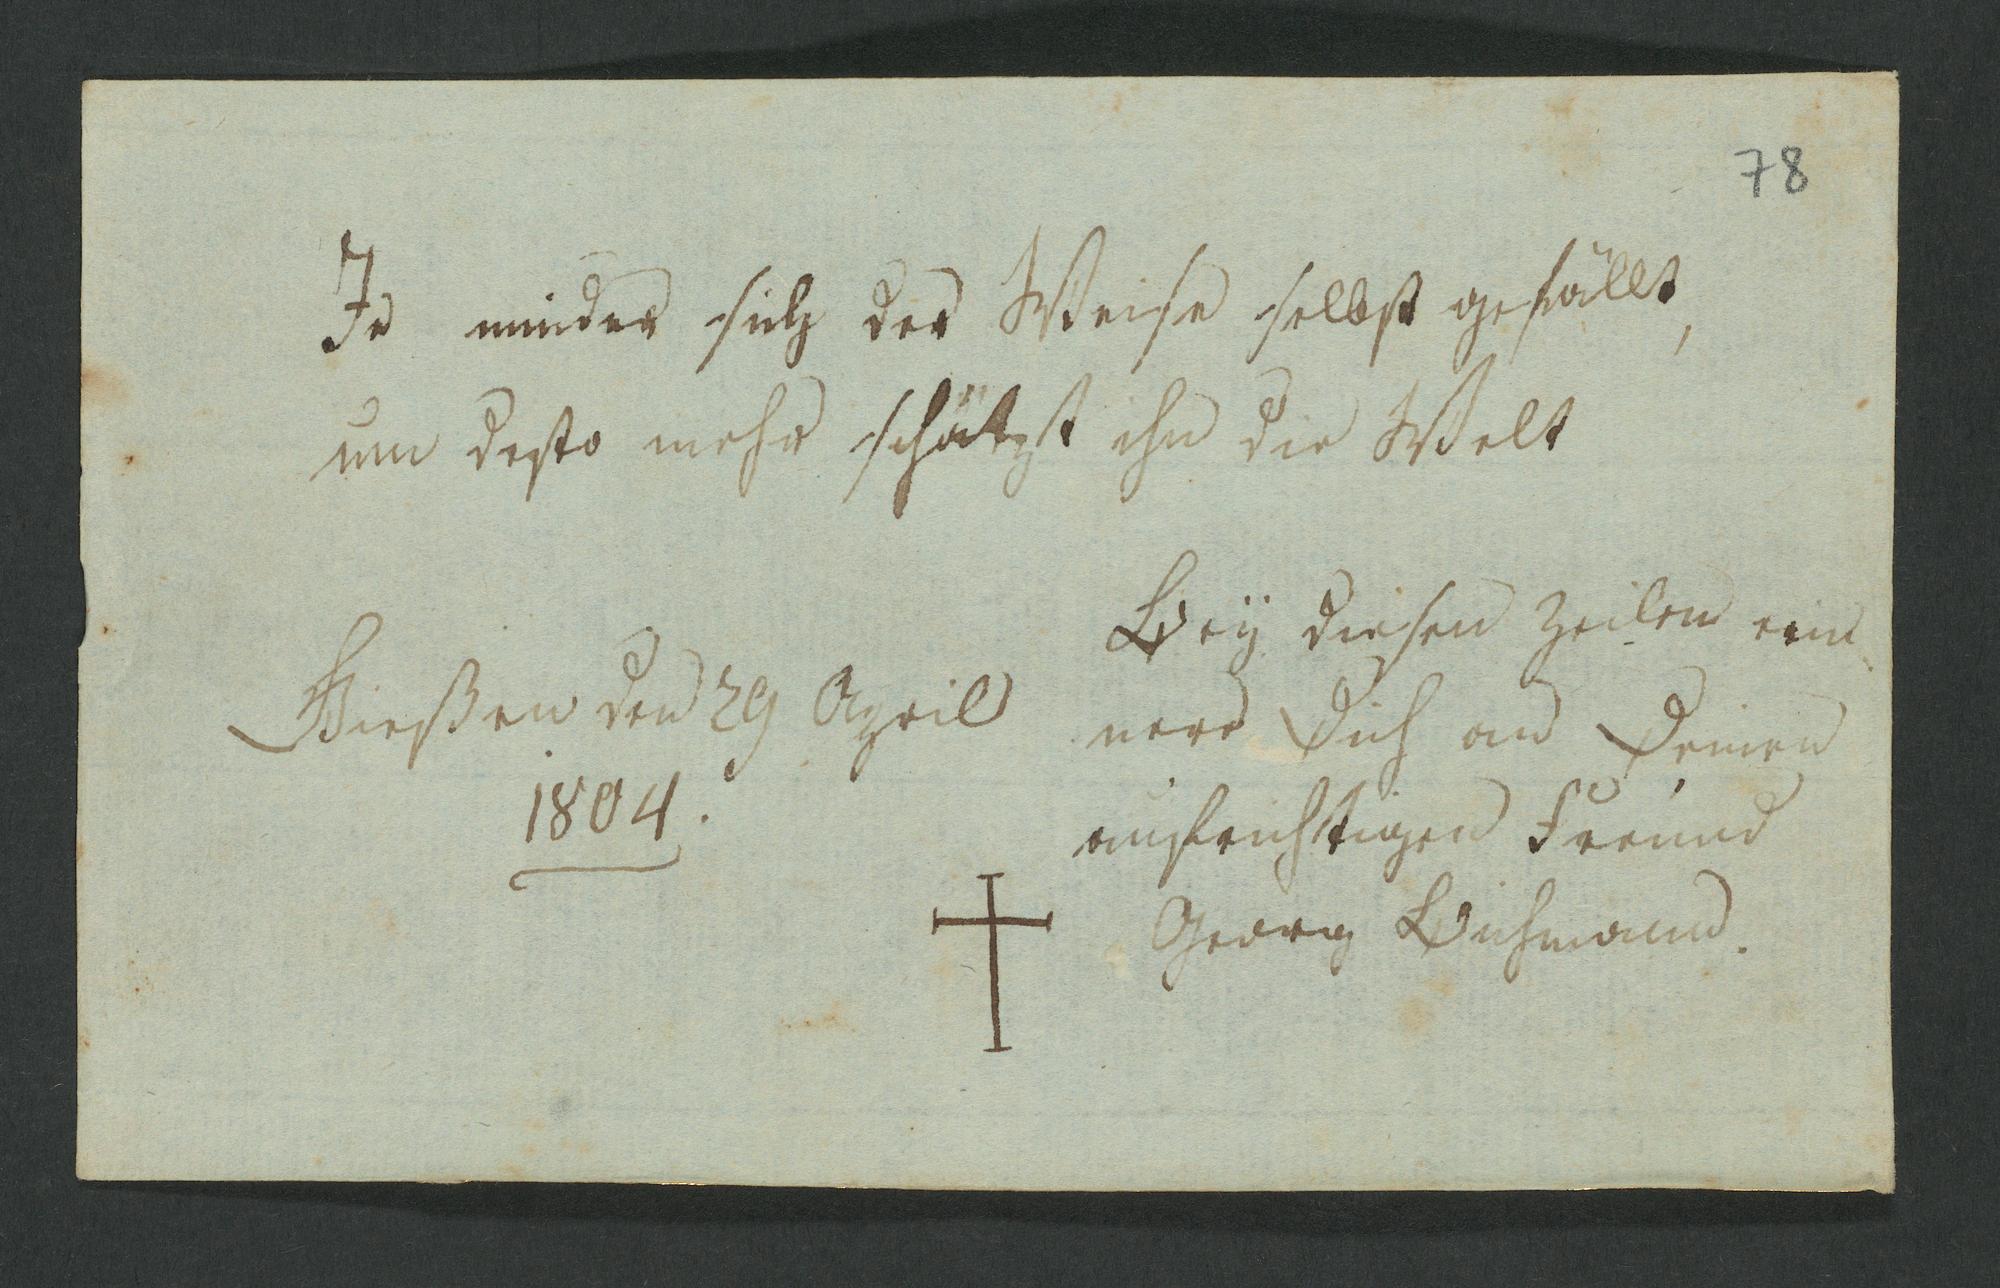 78
Je minder sich der Weise selbst gefällt,
um desto mehr schätzt ihn die Welt
Gießen den 29 April
1804.
Bey diesen Zeilen erin
nere Dich an Deinen
aufrichtigen Freund
Georg